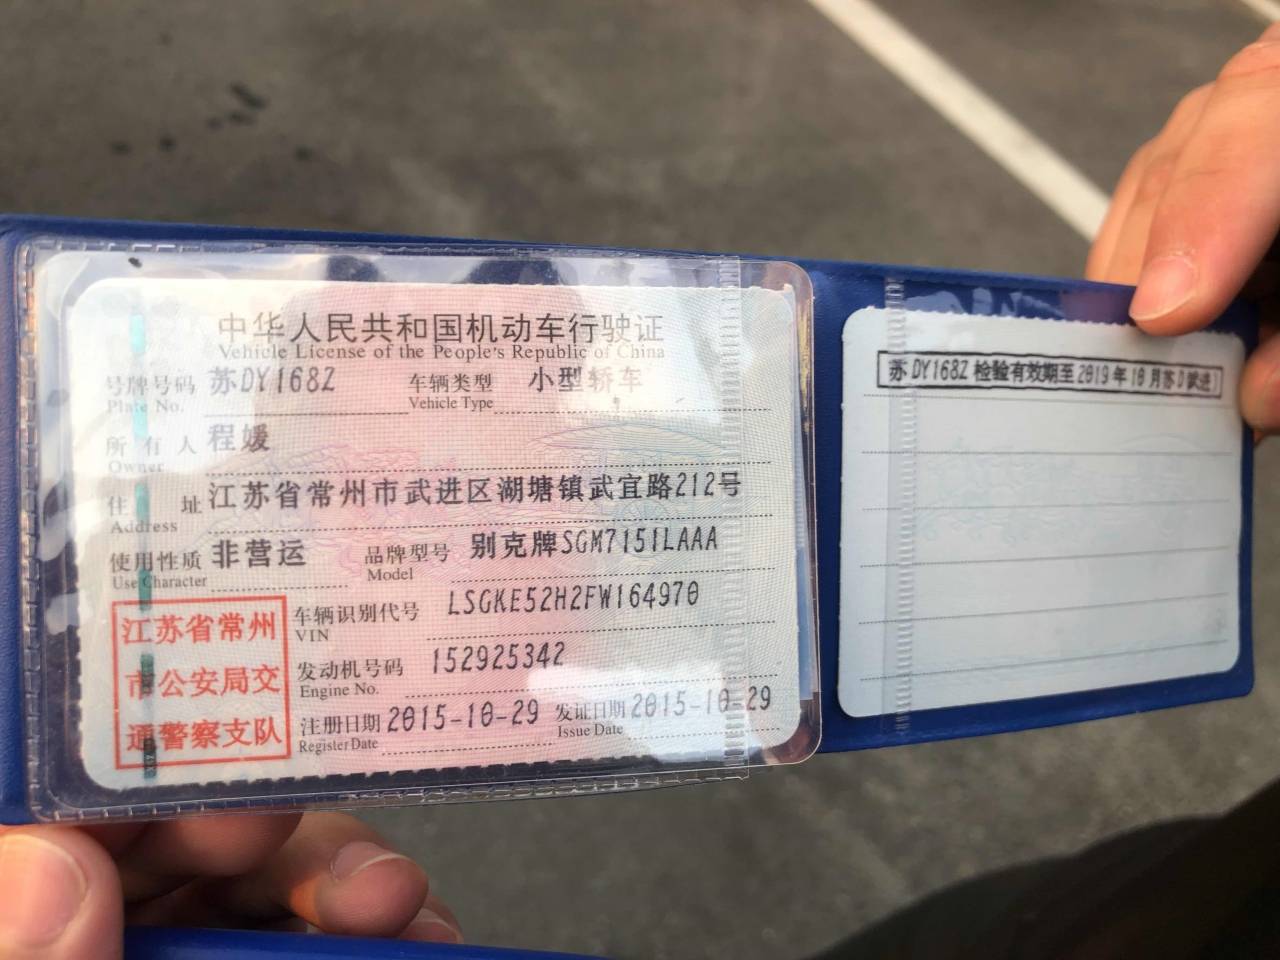 中华人民共和国机动车行驶证
Vehicle License of the People's Republic of China
号牌号码 苏DY168Z 车辆类型 小型轿车
Plate No. Vehicle Type
所有人 程媛
Owner
住址 江苏省常州市武进区湖塘镇武宜路212号
Address
使用性质 非营运 品牌型号 别克牌SGM7151LAAA
Use Character Model
江苏省常州
市公安局交
通警察支队
车辆识别代号 LSGKE52H2FW164970
VIN
发动机号码 152925342
Engine No.
注册日期 2015-10-29 发证日期 2015-10-29
Register Date Issue Date
苏DY168Z 检验有效期至2019年10月苏D(武进)